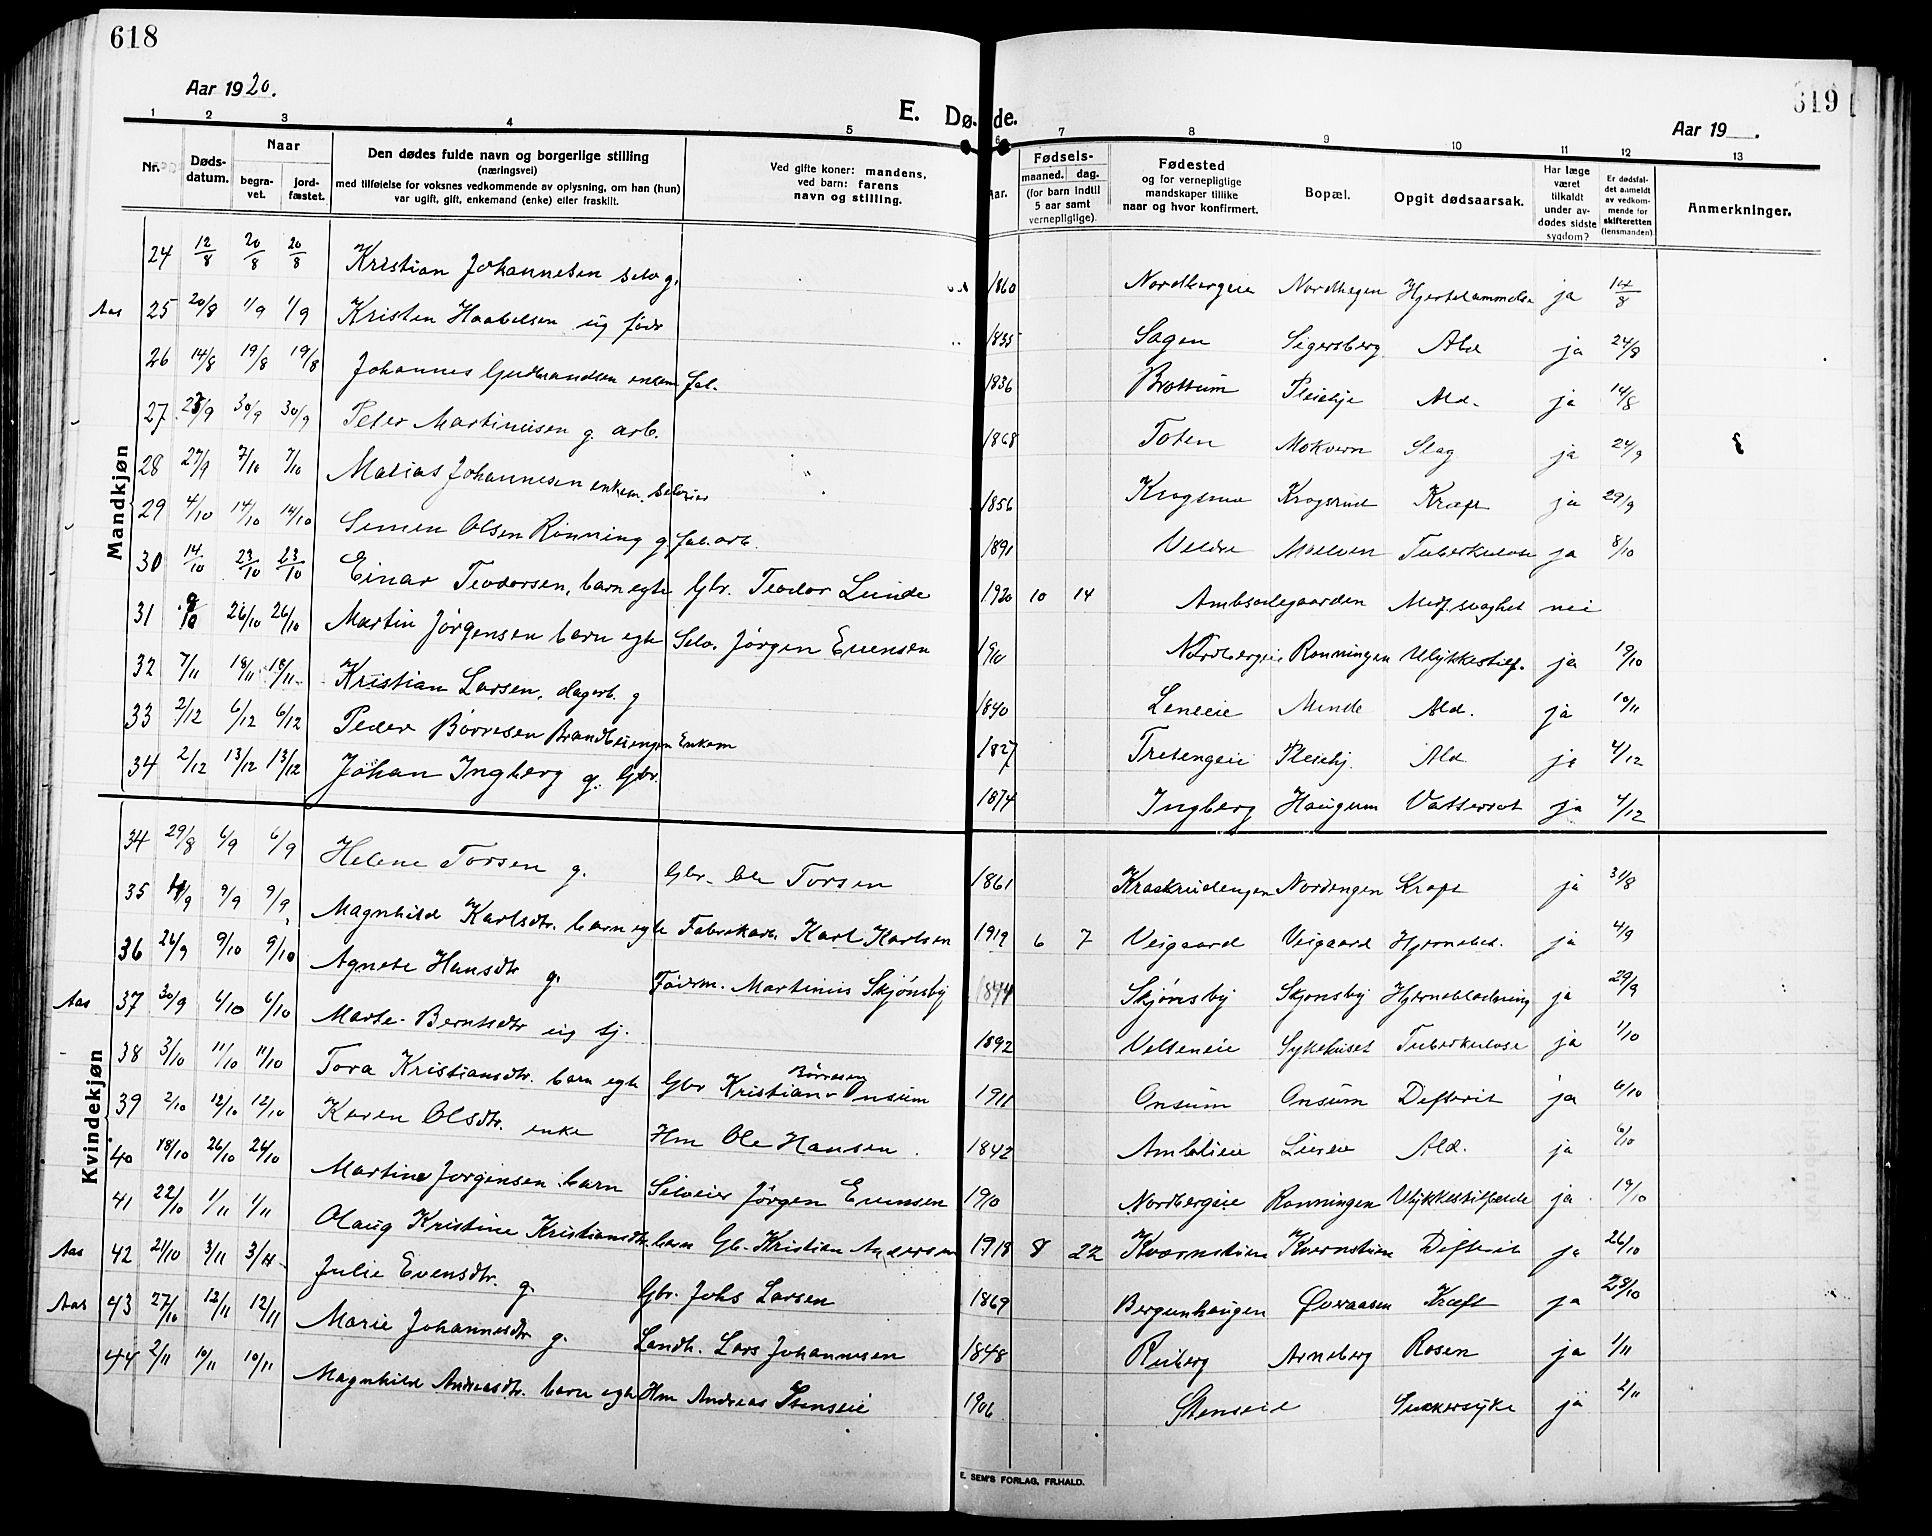 618
619
Aar 1920.
E. Døde.
Aar 19 .
1 2 3 4 5 6 7 8 9 10 11 12 13
Nr. Døds-datum. Naar begra-vet. jord-fæstet. Den dødes fulde navn og borgerlige stilling (næringsvei) med tilføielse for voksnes vedkommende av oplysning, om han (hun) var ugift, gift, enkemand (enke) eller fraskilt. Ved gifte koner: mandens, ved barn: farens navn og stilling. Aar. Fødsels- maaned. dag. (for barn indtil 5 aar samt vernepligtige). Fødested og for vernepligtige mandskaper tillike naar og hvor konfirmert. Bopæl. Opgit dødsaarsak. Har læge været tilkaldt under av-dødes sidste sygdom? Er dødsfal-det anmeldt av vedkom-mende for skifteretten (lensmanden) Anmerkninger.
Mandkjøn
24 12/8 20/8 20/8 Kristian Johannesen selv g. 1860 Nordbergeie Nordhagen Hjertelammelse ja 14/8
Aas 25 20/8 1/9 1/9 Kristen Haabelsen ug fødr 1835 Sagen Sigersberg Ald ja 24/8
26 14/8 19/8 19/8 Johannes Gudbrandsen enkem fab. 1836 Brøttum Pleiehje Ald. ja 14/8
27 23/9 30/9 30/9 Peter Martinusen g. arb. 1868 Toten Mokvern Slag ja 24/9
28 27/9 7/10 7/10 Matias Johannesen enkem. selveier 1856 Krogsrud Krogsrud Kræft ja 29/9
29 4/10 14/10 14/10 Simen Olsen Rønning g. fab.arb. 1891 Veldre Moelven Tuberkulose ja 8/10
30 14/10 23/10 23/10 Einar Teodorsen, barn egte Gbr. Teodor Lunde 1920 10 14 Ambsdegaarden Medf. svaghet nei
31 9/10 26/10 26/10 Martin Jørgensen barn egte Selv. Jørgen Evensen 1910 Nordbergeie Rønningen Ulykkestilf. ja 19/10
32 7/11 18/11 18/11 Kristian Larsen, dagarb. g 1840 Leneie Minde Ald. ja 10/11
33 2/12 6/12 6/12 Peder Børresen Brandbuengen Enkem 1827 Tretengeie Pleiehj. Ald ja 4/12
34 2/12 13/12 13/12 Johan Ingberg g. Gbr. 1874 Ingberg Haugum Vattersot ja 4/12
Kvindekjøn
34 29/8 6/9 6/9 Helene Torsen g. Gbr. Ole Torsen 1861 Kraskrudengen Nordengen Kræft ja 31/8
35 4/9 9/9 9/9 Magnhild Karlsdtr. barn egte Fabrikarb. Karl Karlsen 1919 6 7 Veigaard Veigaard Hjernebet. ja 4/9
36 26/9 9/10 9/10 Agnete Hansdtr g. Føderm. Martinus Skjønsby 1844 Skjønsby Skjønsby Hjerneblødning ja 29/9
Aas 37 30/9 6/10 6/10 Marte Berntsdtr ug tj. 1892 Velteneie Sykehuset Tuberkulose ja 1/10
38 3/10 11/10 11/10 Tora Kristiansdtr. barn egte Gbr Kristian Børresen Onsum 1911 Onsum Onsum Difterit ja 6/10
39 2/10 12/10 12/10 Karen Olsdtr. enke Hm Ole Hansen. 1842 Amblieie Lieeie Ald. ja 6/10
40 18/10 26/10 26/10 Martine Jørgensen barn Selveier Jørgen Evensen 1910 Nordbergeie Rønningen Ulykkestilfælde ja 19/10
41 22/10 1/11 1/11 Olaug Kristine Kristiansdtr. barn Gb. Kristian Andersen 1918 8 22 Kværnstuen Kvernstuen Difterit ja 26/10
Aas 42 21/10 3/11 3/11 Julie Evensdtr. g. Gbr. Johs Larsen 1869 Bergunhaugen Øveraasen Kræft ja 23/10
Aas 43 27/10 12/11 12/11 Marie Johannesdtr g. Landh. Lars Johannesen 1848 Reiberg Arneberg Rosen ja 1/11
44 2/11 10/11 10/11 Magnhild Andreasdtr. barn egte Hm Andreas Stenseie 1906 Stenseie Sukkersyke ja 2/11
E. SEM'S FORLAG, FR.HALD.